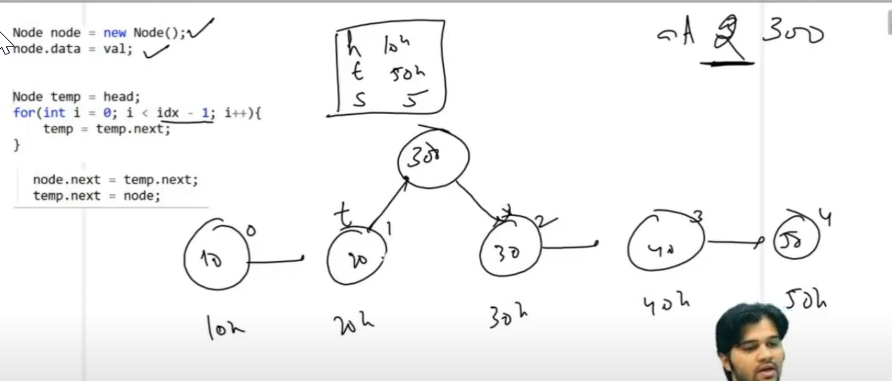 Node node = new Node();
node.data = val;
Node temp = head;
for(int i = 0; i < idx - 1; i++){
temp = temp.next;
}
node.next = temp.next;
temp.next = node;
h 10h
t 50h
s 5
aA 2 300
300
t
0 1 2 3 4
10 20 30 40 50
10h 20h 30h 40h 50h